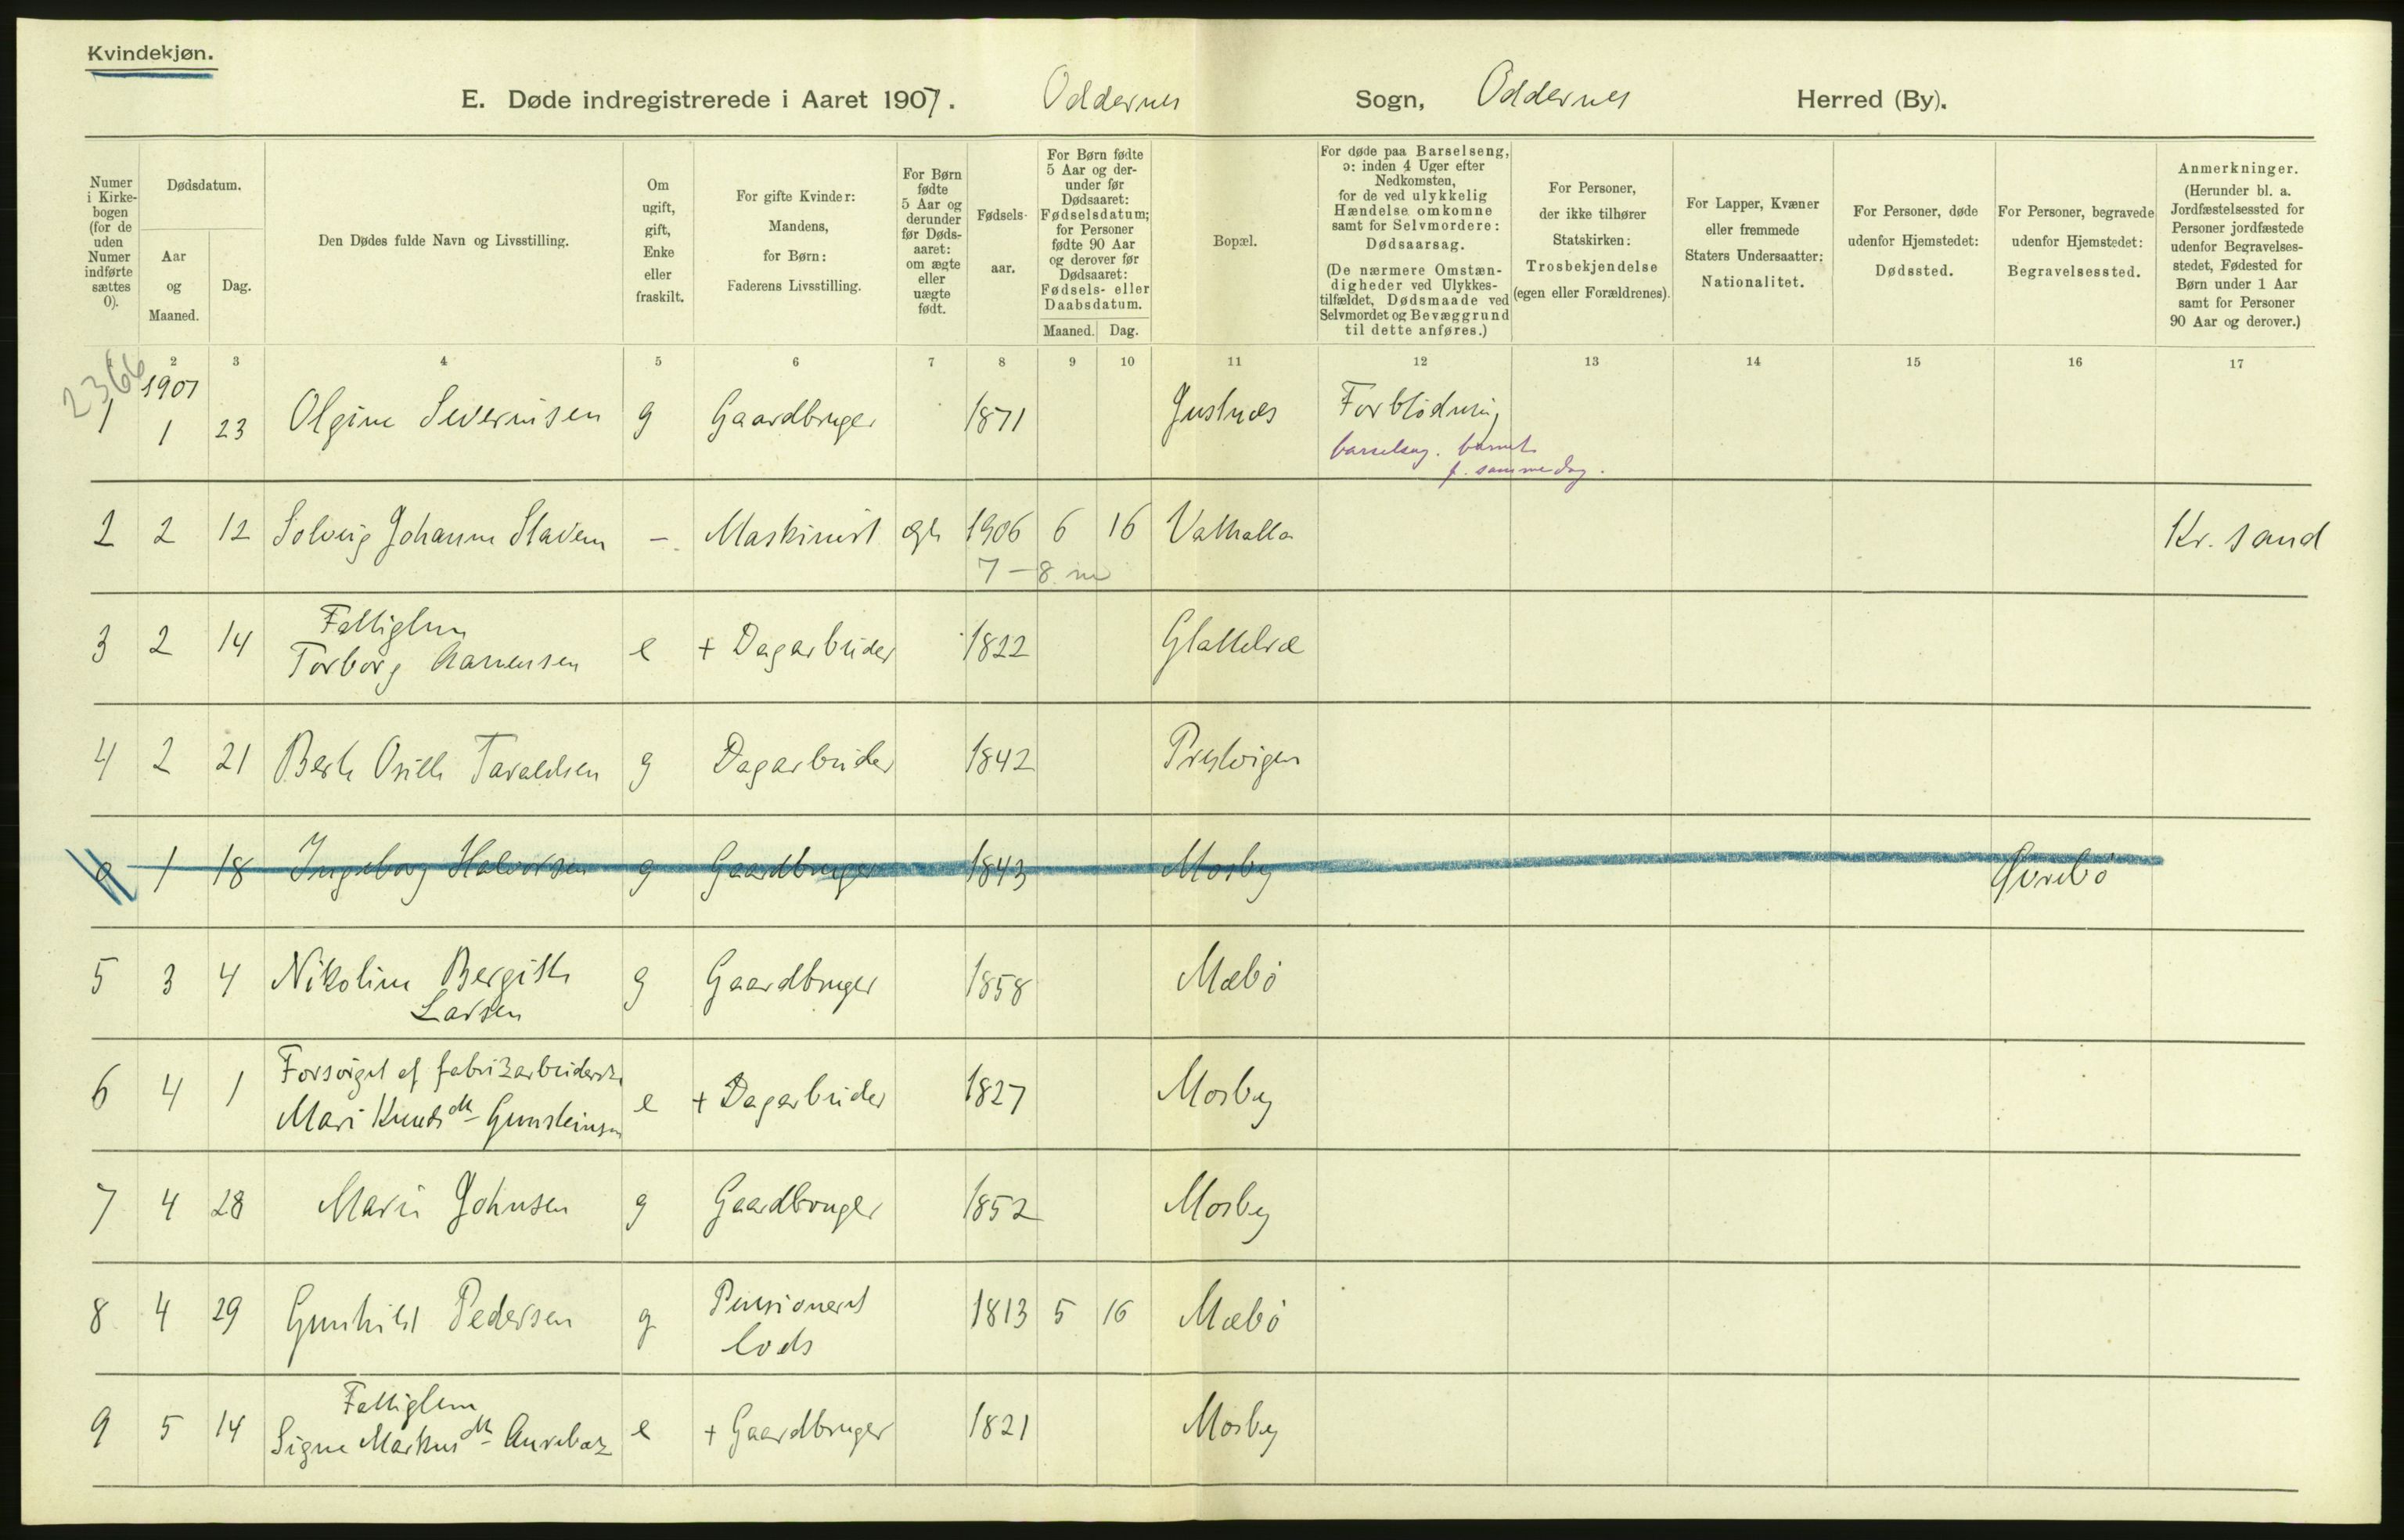 Kvindekjøn.
E. Døde indregistrerede i Aaret 1907. Oddernes Sogn, Oddernes Herred (By).
Numer i Kirke-bogen (for de uden Numer indførte sættes 0).
Dødsdatum.
Aar og Maaned.
Dag.
Den Dødes fulde Navn og Livsstilling.
Om ugift, gift, Enke eller fraskilt.
For gifte Kvinder: Mandens, for Børn: Faderens Livsstilling.
For Børn fødte 5 Aar og derunder før Døds-aaret: om ægte eller uægte født.
Fødsels-aar.
For Børn fødte 5 Aar og der-under før Dødsaaret: Fødselsdatum; for Personer fødte 90 Aar og derover før Dødsaaret: Fødsels- eller Daabsdatum.
Maaned. Dag.
Bopæl.
For døde paa Barselseng, ɔ: inden 4 Uger efter Nedkomsten, for de ved ulykkelig Hændelse omkomne samt for Selvmordere: Dødsaarsag.
(De nærmere Omstæn-digheder ved Ulykkes-tilfældet, Dødsmaade ved Selvmordet og Bevæggrund til dette anføres.)
For Personer, der ikke tilhører Statskirken: Trosbekjendelse (egen eller Forældrenes).
For Lapper, Kvæner eller fremmede Staters Undersaatter: Nationalitet.
For Personer, døde udenfor Hjemstedet: Dødssted.
For Personer, begravede udenfor Hjemstedet: Begravelsessted.
Anmerkninger.
(Herunder bl. a. Jordfæstelsessted for Personer jordfæstede udenfor Begravelses-stedet, Fødested for Børn under 1 Aar samt for Personer 90 Aar og derover.)
2 3 4 5 6 7 8 9 10 11 12 13 14 15 16 17
2366
1907
1 1 23 Olgine Severinsen g Gaardbruger 1871 Justnes Forblødning
barselseng. barnet
f. samme dag.
2 2 12 Solveig Johanne Slavem - Maskinist ægte 1906 6 16 Valhalla Kr. sand
7-8 m
Fattiglem
3 2 14 Torborg Aanensen e + Dagarbeider 1822 Glattelræ
4 2 21 Berte Osille Taraldsen g Dagarbeider 1842 Prestvigen
0 1 18 Ingeborg Halvorsen g Gaardbruger 1843 Mosby Øvrebø
5 3 4 Nikoline Bergitte g Gaardbruger 1858 Mæbø
Larsen
Forsørget af fabrikarbeiderske
6 4 1 Mari Knudsdt Gunsteinsen e + Dagarbeider 1827 Mosby
7 4 28 Mari Johnsen g Gaardbruger 1852 Mosby
8 4 29 Gunhild Pedersen g Pensioneret 1813 5 16 Mæbø
lods
Fattiglem
9 5 14 Signe Markusdt e + Gaardbruger 1821 Mosby